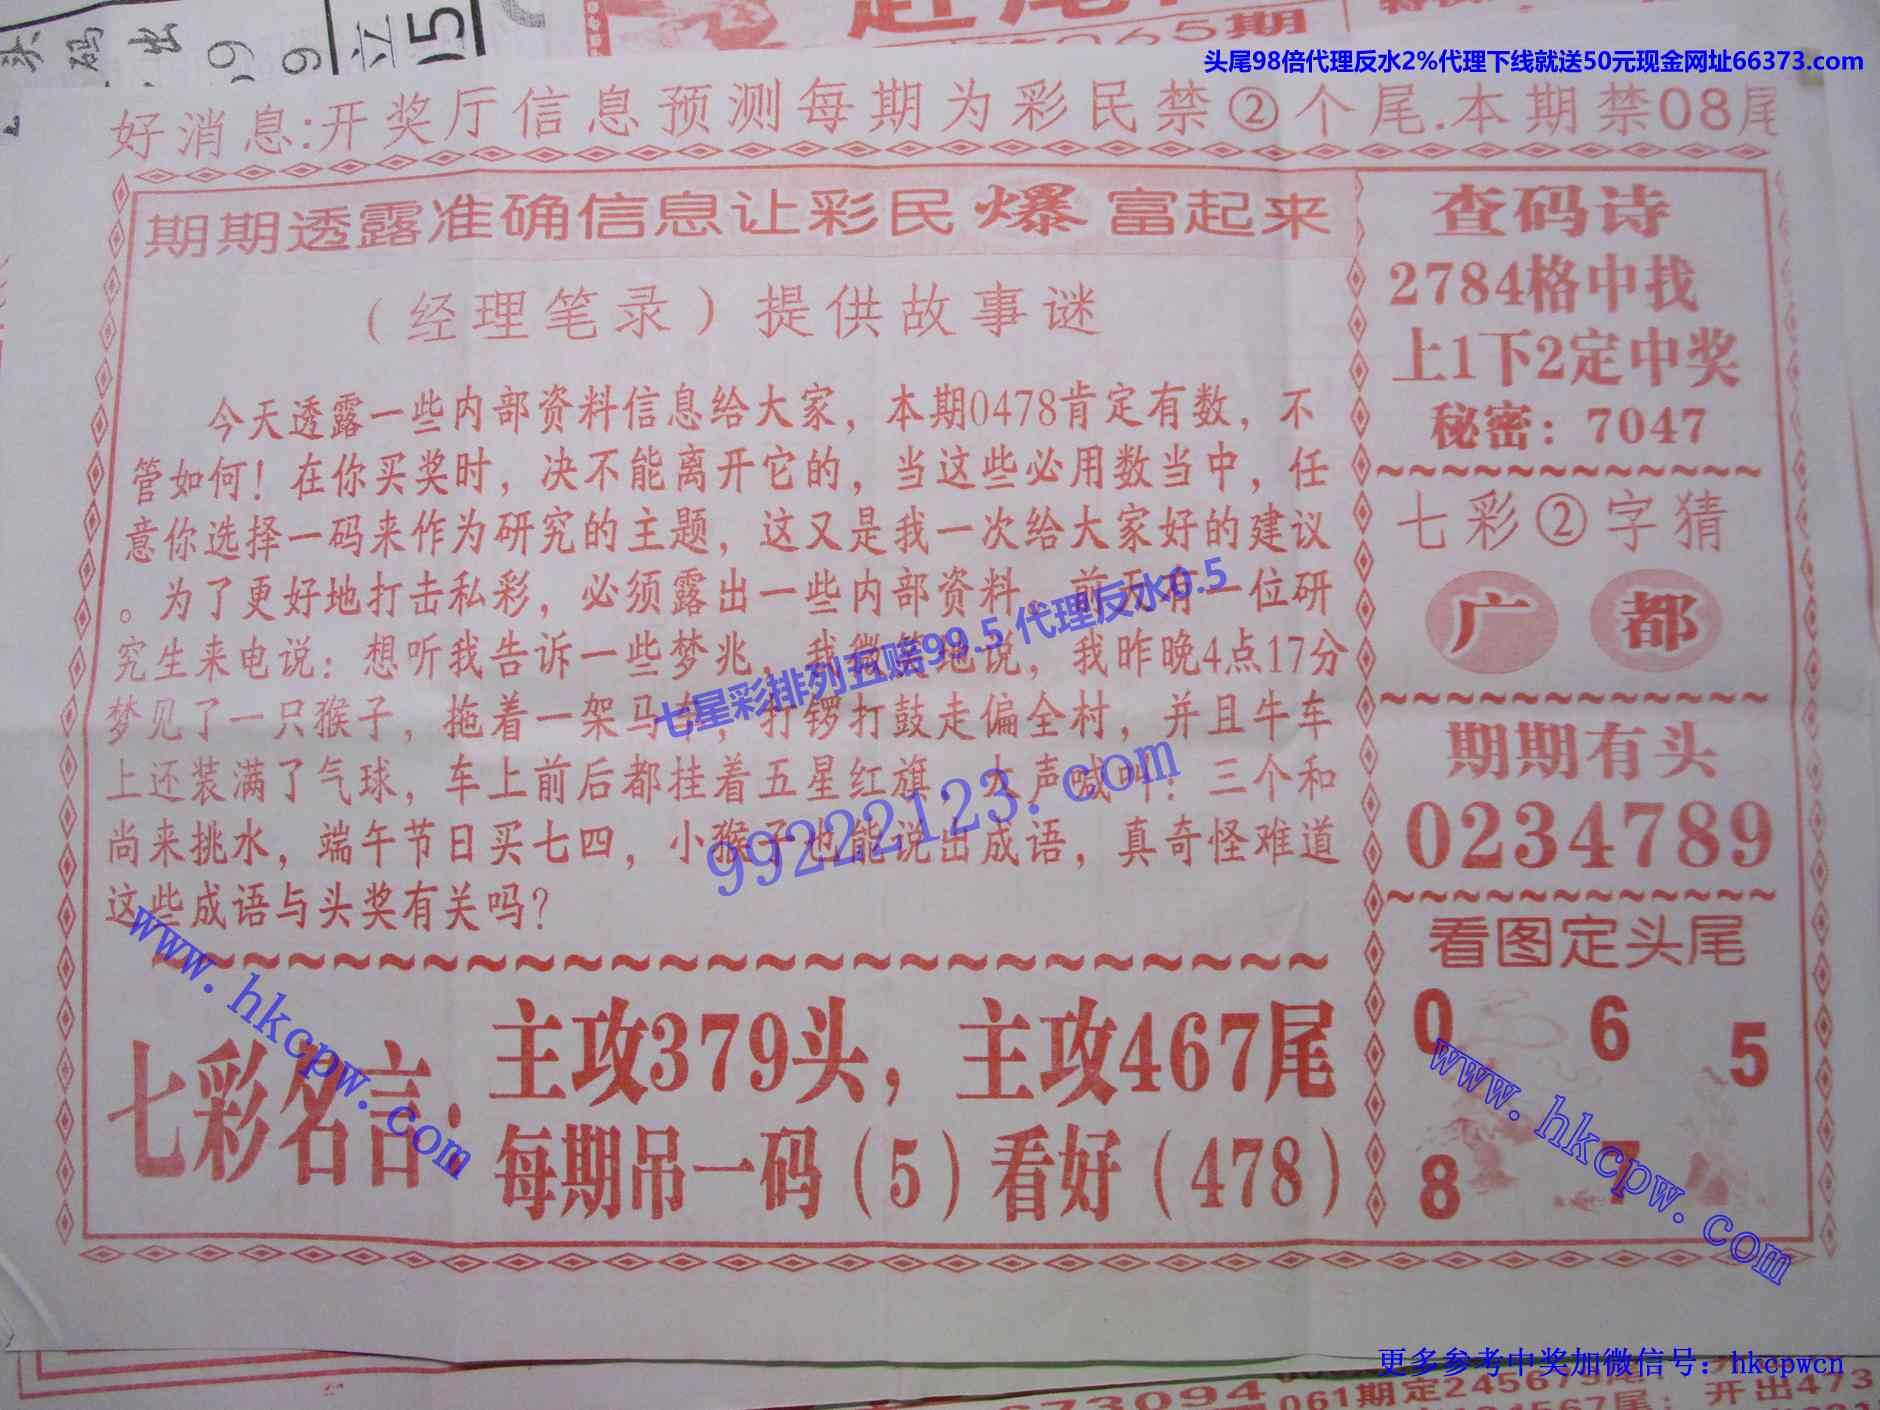 头尾98倍代理反水2%代理下线就送50元现金网址66373.com
好消息:开奖厅信息预测每期为彩民禁②个尾.本期禁08尾
期期透露准确信息让彩民爆富起来
（经理笔录）提供故事谜
今天透露一些内部资料信息给大家，本期0478肯定有数，不
管如何！在你买奖时，决不能离开它的，当这些必用数当中，任
意你选择一码来作为研究的主题，这又是我一次给大家好的建议
。为了更好地打击私彩，必须露出一些内部资料，前天有一位研
究生来电说：想听我告诉一些梦兆，我微笑地说，我昨晚4点17分
梦见了一只猴子，拖着一架马车，打锣打鼓走偏全村，并且牛车
上还装满了气球，车上前后都挂着五星红旗，大声喊叫：三个和
尚来挑水，端午节日买七四，小猴子也能说出成语，真奇怪难道
这些成语与头奖有关吗？
七星彩排列五赔99.5 代理反水0.5
99222123.com
www.hkcpw.com
七彩名言：
主攻379头，主攻467尾
每期吊一码（5）看好（478）
查码诗
2784格中找
上1下2定中奖
秘密：7047
七彩②字猜
广 都
期期有头
0234789
看图定头尾
0 6 5
8 7
www.hkcpw.com
更多参考中奖加微信号：hkcpwcn
061期定245679尾
开出473